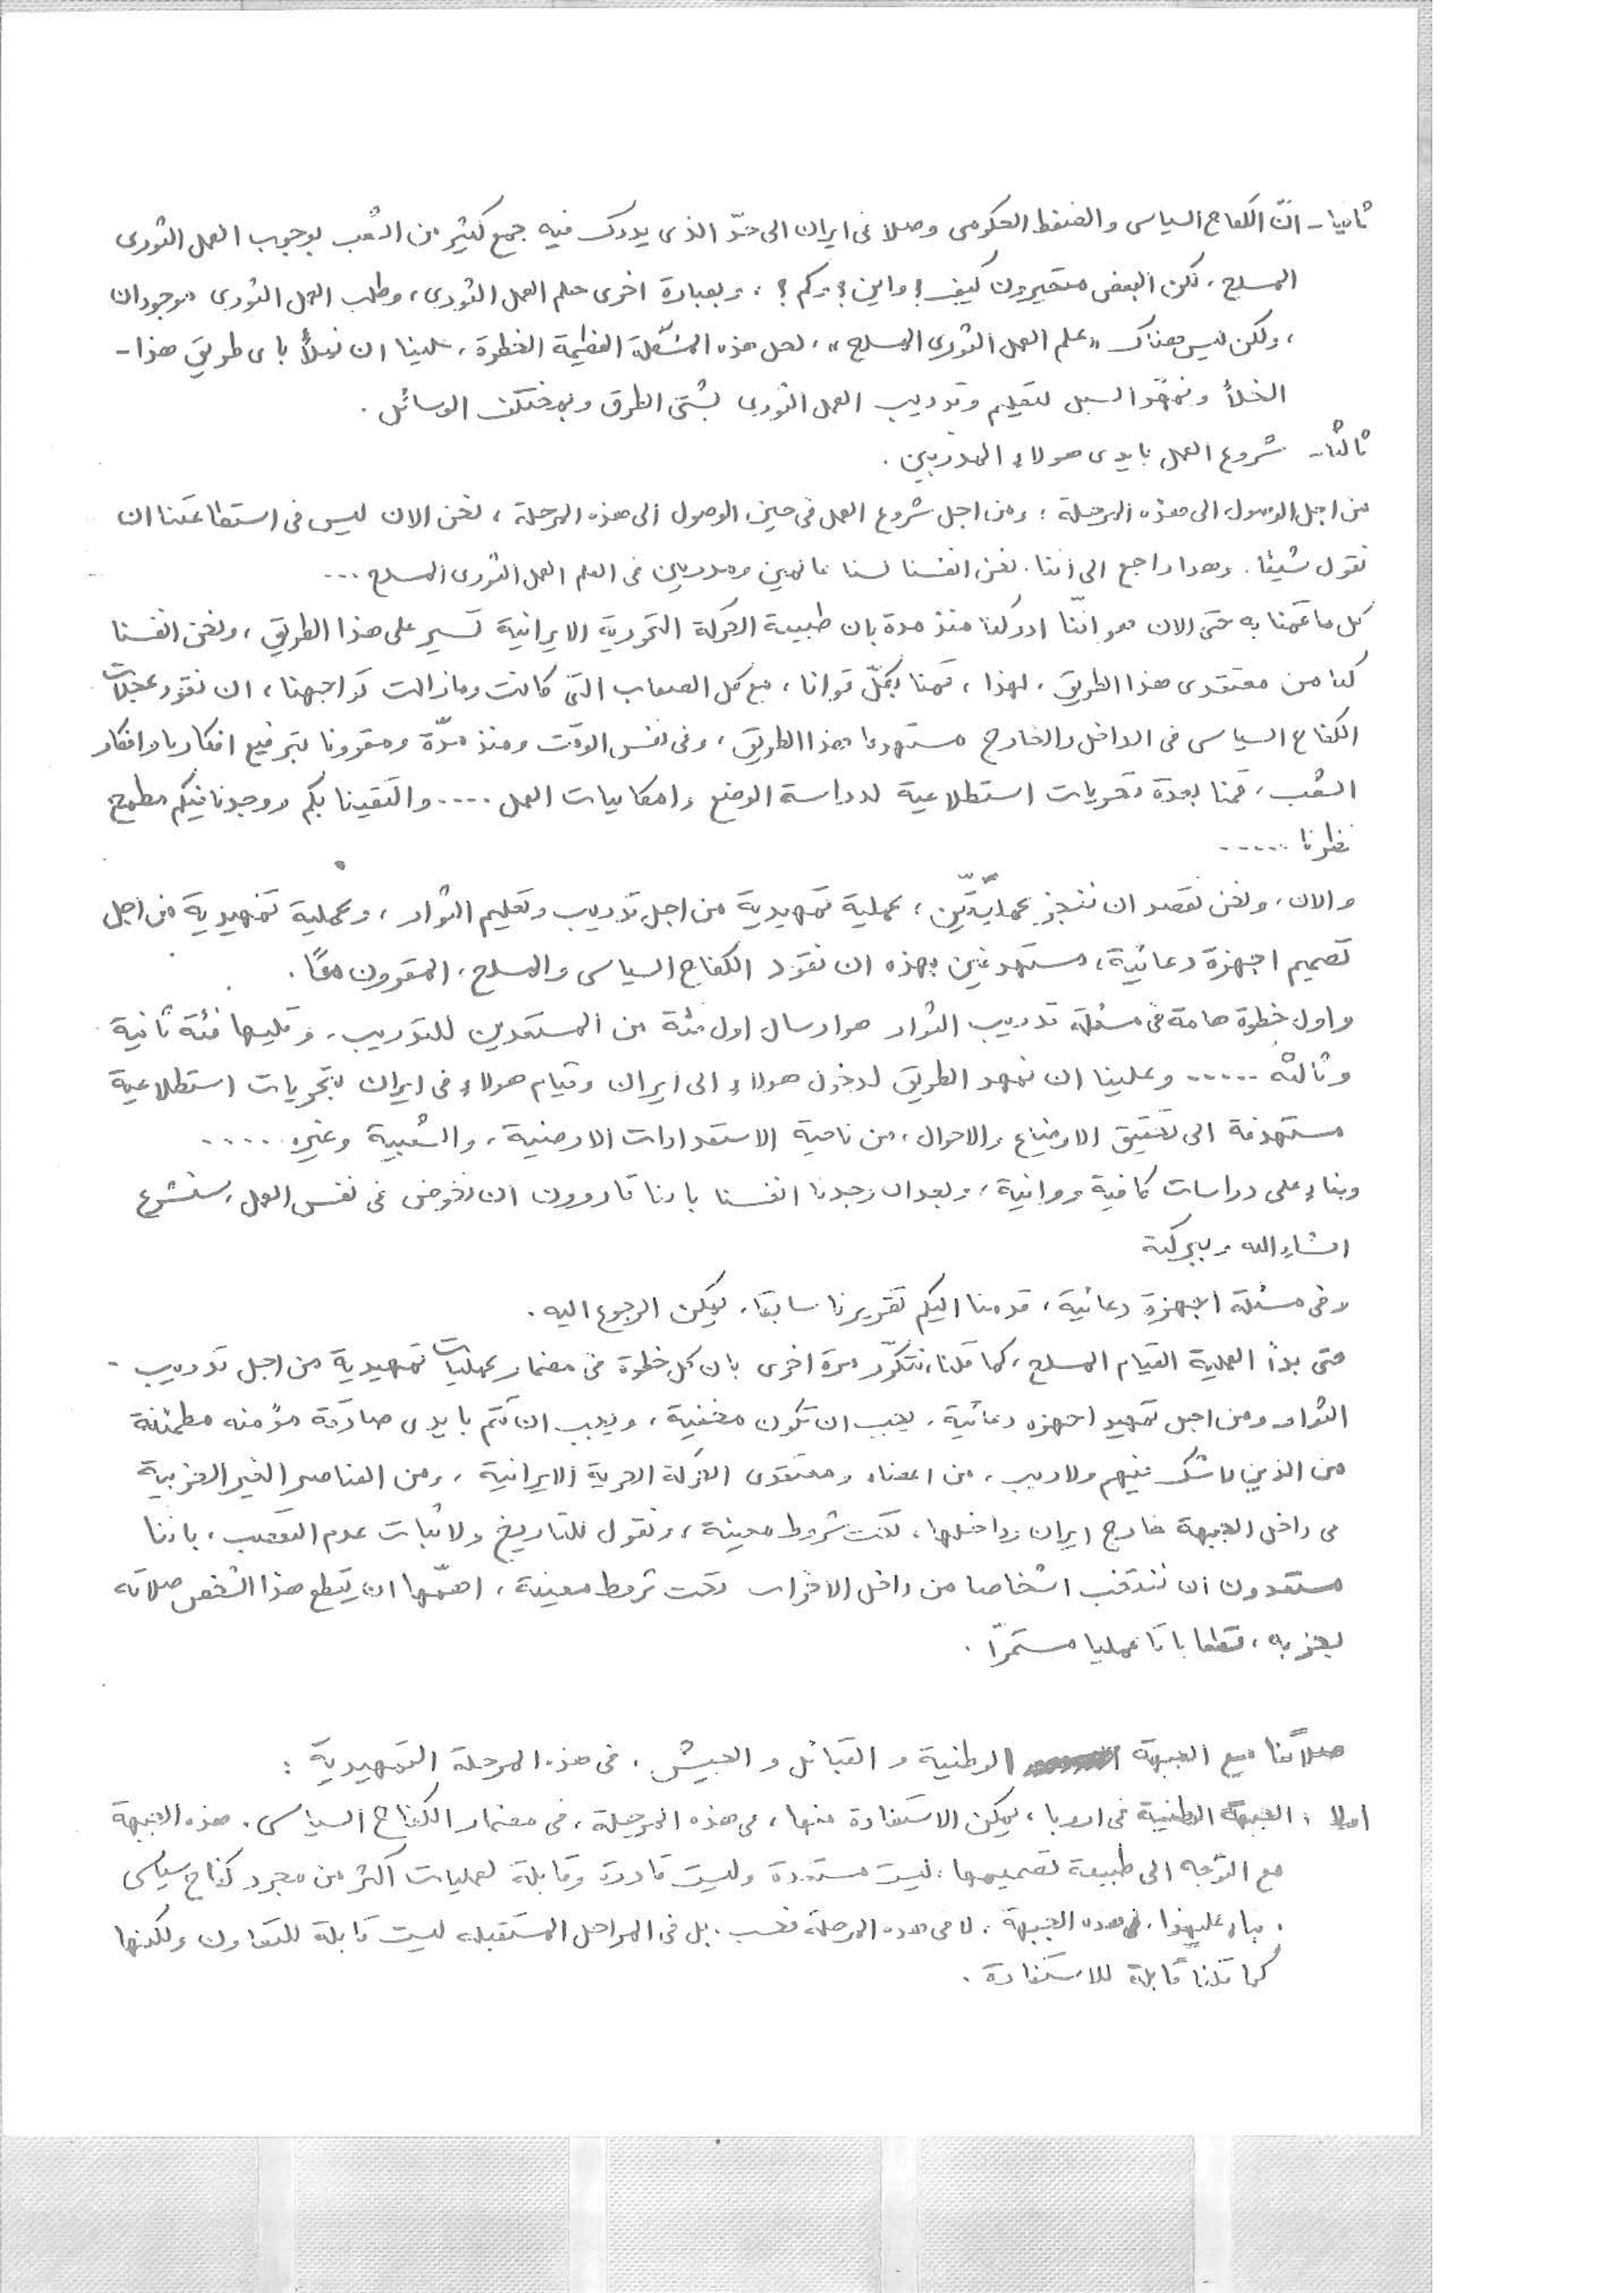 ثانيا - انّ الكفاح السياسى والضغط الحكومى وصلا فى ايران الى حدّ الذى يدرك فيه جمع كثير من الشعب بوجوب العمل الثورى
المسلح، لكن البعض متحيرون كيف؟ واين؟ وكم؟، وبعبارة اخرى حلم العمل الثورى، وطلب العمل الثورى موجودان
، ولكن ليس هناك «علم العمل الثورى المسلح»، لحل هذه المشكلة العظيمة الخطرة، علينا ان نملأ باى طريق هذا -
الخلأ ونمهّد السبل لتعليم وتدريب العمل الثورى بشتى الطرق وبمختلف الوسائل.
ثالثا - شروع العمل بايدى هولاء المدربين.
من اجل الوصول الى هذه المرحلة؛ ومن اجل شروع العمل فى حين الوصول الى هذه المرحلة، نحن الان ليس فى استطاعتنا ان
نقول شيئا. وهذا راجع الى اننا، نحن انفسنا لسنا عالمين ومدربين فى العلم العمل الثورى المسلح ...
كل ما قمنا به حتى الان هو انّنا ادركنا منذ مدة بان طبيعة الحركة التحررية الايرانية تسير على هذا الطريق، ونحن انفسنا
كنا من معتقدى هذا الطريق. لهذا، قمنا بكلّ قوانا، مع كل الصعاب التى كانت وما زالت تواجهنا، ان نقود عجلات
الكفاح السياسى فى الداخل والخارج مستهدفا هذا الطريق، وفى نفس الوقت ومنذ مدّة ومقرونا بترفيع افكارنا وافكار
الشعب، قمنا بعدة تحريات استطلاعية لدراسة الوضع وامكانيات العمل .... والتقينا بكم ووجدنا فيكم مطمح
نظرنا .....
والان، ونحن نقصد ان ننجز عمليّتين، عملية تمهيدية من اجل تدريب وتعليم الثوار، وعملية تمهيدية من اجل
تصميم اجهزة دعائية، مستهدفين بهذه ان نقود الكفاح السياسى والمسلح، المقرون معًا.
واول خطوة هامة فى مسئلة تدريب الثوار هو ارسال اول فئة من المستعدين للتدريب. وتليها فئة ثانية
وثالثة ..... وعلينا ان نمهد الطريق لدخول هولاء الى ايران وقيام هولاء فى ايران بتحريات استطلاعية
مستهدفة الى تحقيق الاوضاع والاحوال، من ناحية الاستعدادات الارضية، والشعبية وغيره .....
وبناء على دراسات كافية ووافية، وبعد ان وجدنا انفسنا باننا قادرون ان نخوض فى نفس العمل، سنشرع
انشاء الله وببركته
وفى مسئلة اجهزة دعائية، قدمنا اليكم تقريرنا سابقا. يمكن الرجوع اليه.
حتى بدأ العملية القيام المسلح، كما قلنا، نتكرّر مرة اخرى بان كل خطوة فى مضمار عمليات تمهيدية من اجل تدريب -
الثوار ومن اجل تمهيد اجهزه دعائية، يجب ان تكون مخفية، ويجب ان تتم بايدى صادقة مؤمنه مطمئنة
من الذين لا شك فيهم ولا ريب، من اعضاء ومعتقدى الحركة الحرية الايرانية، ومن العناصر الغير الحزبية
فى داخل الجبهة خارج ايران وداخلها، تحت شروط معينة، ونقول للتاريخ ولاثبات عدم التعصب، باننا
مستعدون ان ننتخب اشخاصا من داخل الاحزاب تحت شروط معينة، اهمّها ان يقطع هذا الشخص صلاته
بحزبه، قطعا باتا عمليا مستمرّا.
صلاتنا مع الجبهة الوطنية و القبائل و الجيش. فى هذه المرحلة التمهيدية:
اولا: الجبهة الوطنية فى اروبا، يمكن الاستفادة منها، فى هذه المرحلة، فى مضمار الكفاح السياسى. هذه الجبهة
مع التوجه الى طبيعة تصميمها، ليست مستعدة وليست قادرة وقابلة لعمليات اكثر من مجرد كفاح سياسى
. بناء عليهذا، فهذه الجبهة، لا فى هذه المرحلة فحسب، بل فى المراحل المستقبله ليست قابلة للتعاون ولكنها
كما قلنا قابلة للاستفادة.